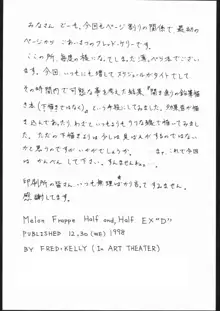 みなさん どーも、今回もページ割りの関係で 最初の
ページから ごあいさつの フレッド・ケリーです。
ここの所、毎度の様になってしまった薄っペラ本でござい
ます。今回 いつもにも増してスケジュールがタイトでして
その時間内で可能な事を考えた結果、『描き流しの鉛筆描
き本（下描きではなく）』という手段にしてみました。効果音が描
き込んであったりわざといつもよりもラフな線で描いてみまし
た。ただの下描きよりは少しは見ばえがするのではない
かと思うのですが いかがでしょうか。 ま、これで今回
は かんべん して下さい。すんませんねぇ…。
印刷所の皆さん いつも無理ばかり言ってすみません。
感謝してます。
Melon Frappe Half and, Half EX"D"
PUBLISHED 12.30 (WE) 1998
BY FRED・KELLY (In ART THEATER)